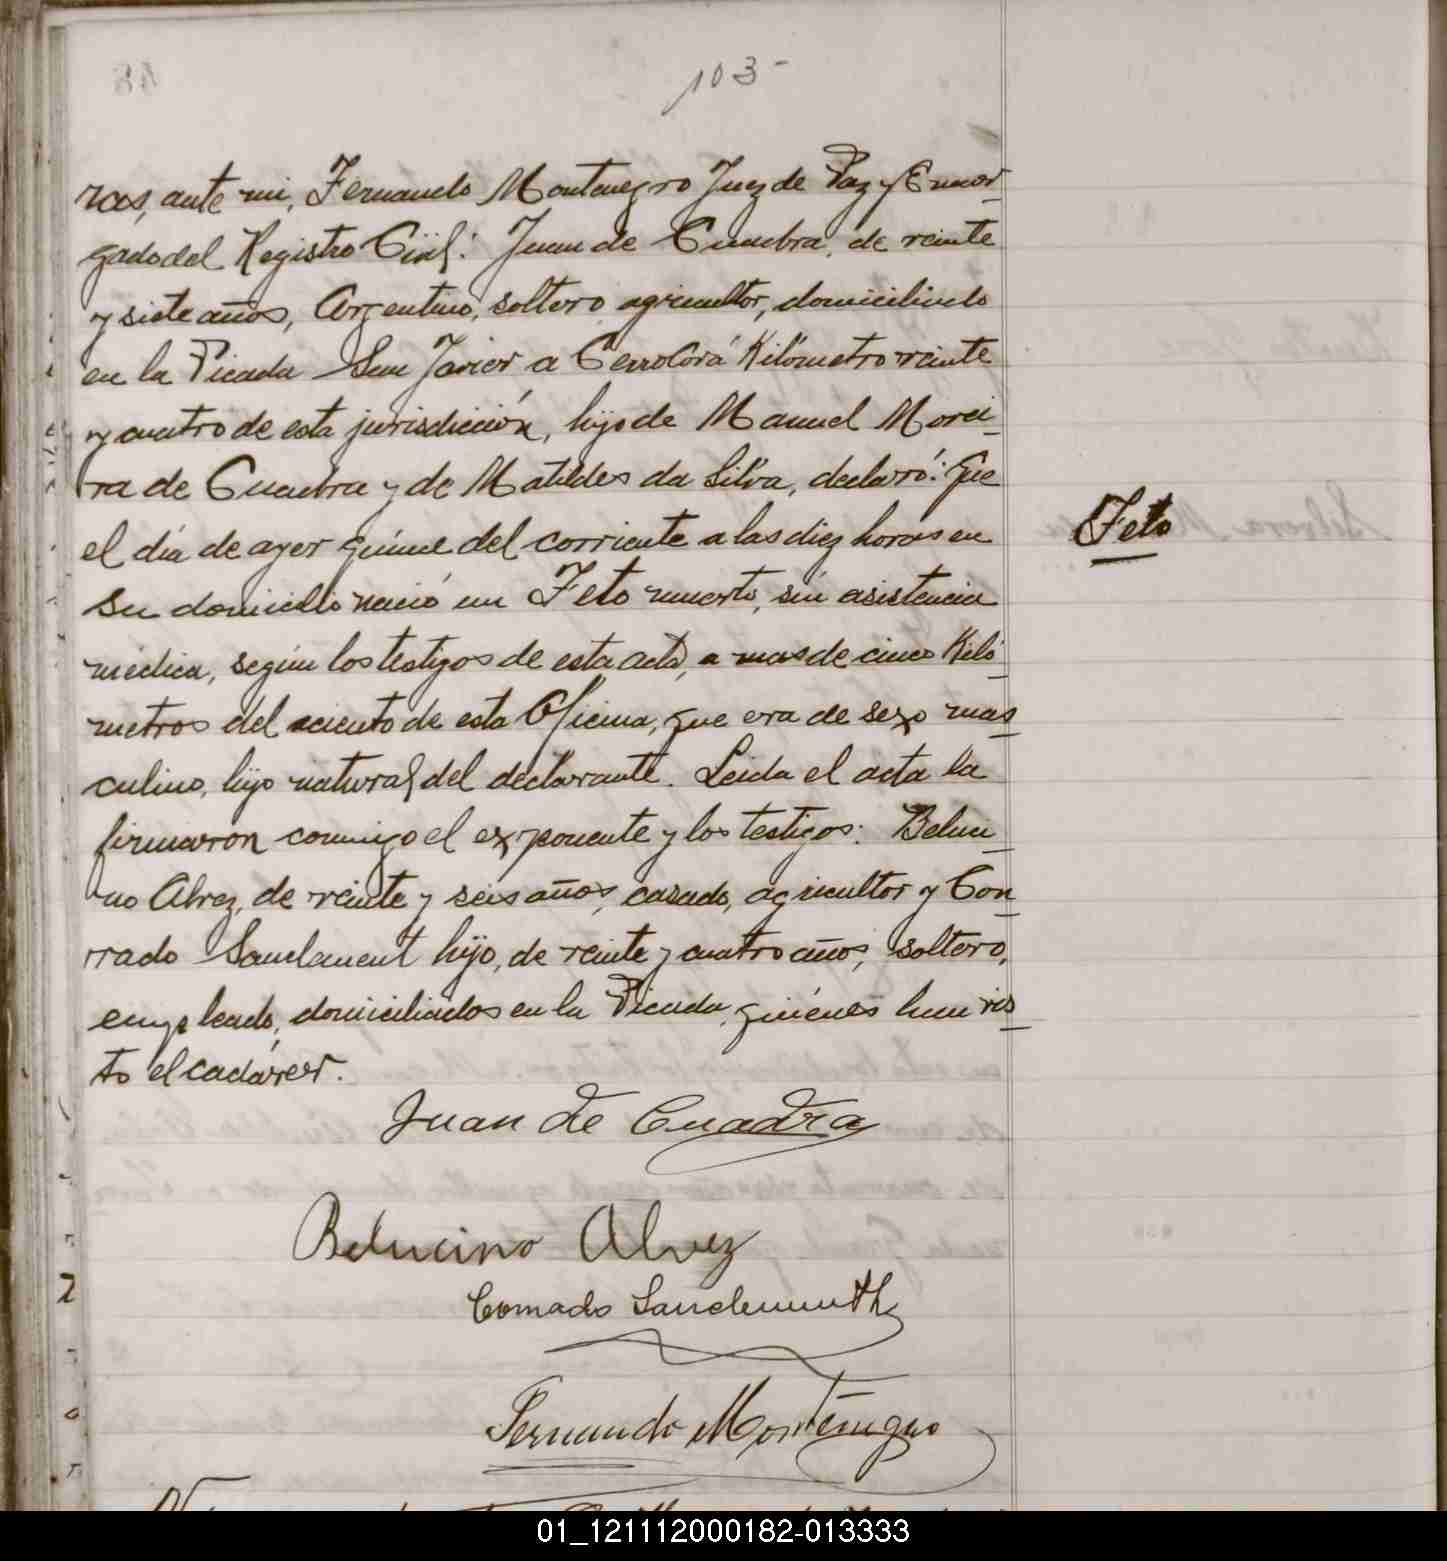 103-
ras, ante mi, Fernando Montenegro Juez de Paz y Encar-
gado del Registro Civil: Juan de Cuadra, de veinte
y siete años, Argentino, soltero, agricultor, domiciliado
en la Picada San Javier a Cerro Corá Kilómetro veinte
y cuatro de esta jurisdicción, hijo de Manuel Morei-
ra de Cuadra y de Matildes da Silva, declaró: Que
el día de ayer quince del corriente a las diez horas en
Feto
su domicilio nació un Feto muerto, sin asistencia
médica, según los testigos de esta acta, a mas de cinco Kiló-
metros del aciento de esta Oficina, que era de sexo mas-
culino, hijo natural del declarante. Leida el acta la
firmaron conmigo el exponente y los testigos: Belmi-
no Alvez, de veinte y seis años, casado, agricultor y Con-
rrado Sanclament hijo, de veinte y cuatro años, soltero,
empleado, domiciliados en la Picada, quiénes han vis-
to el cadáver.
Juan de Cuadra
Alvez
Conrado
Fernando Montenegro
01_121112000182-013333